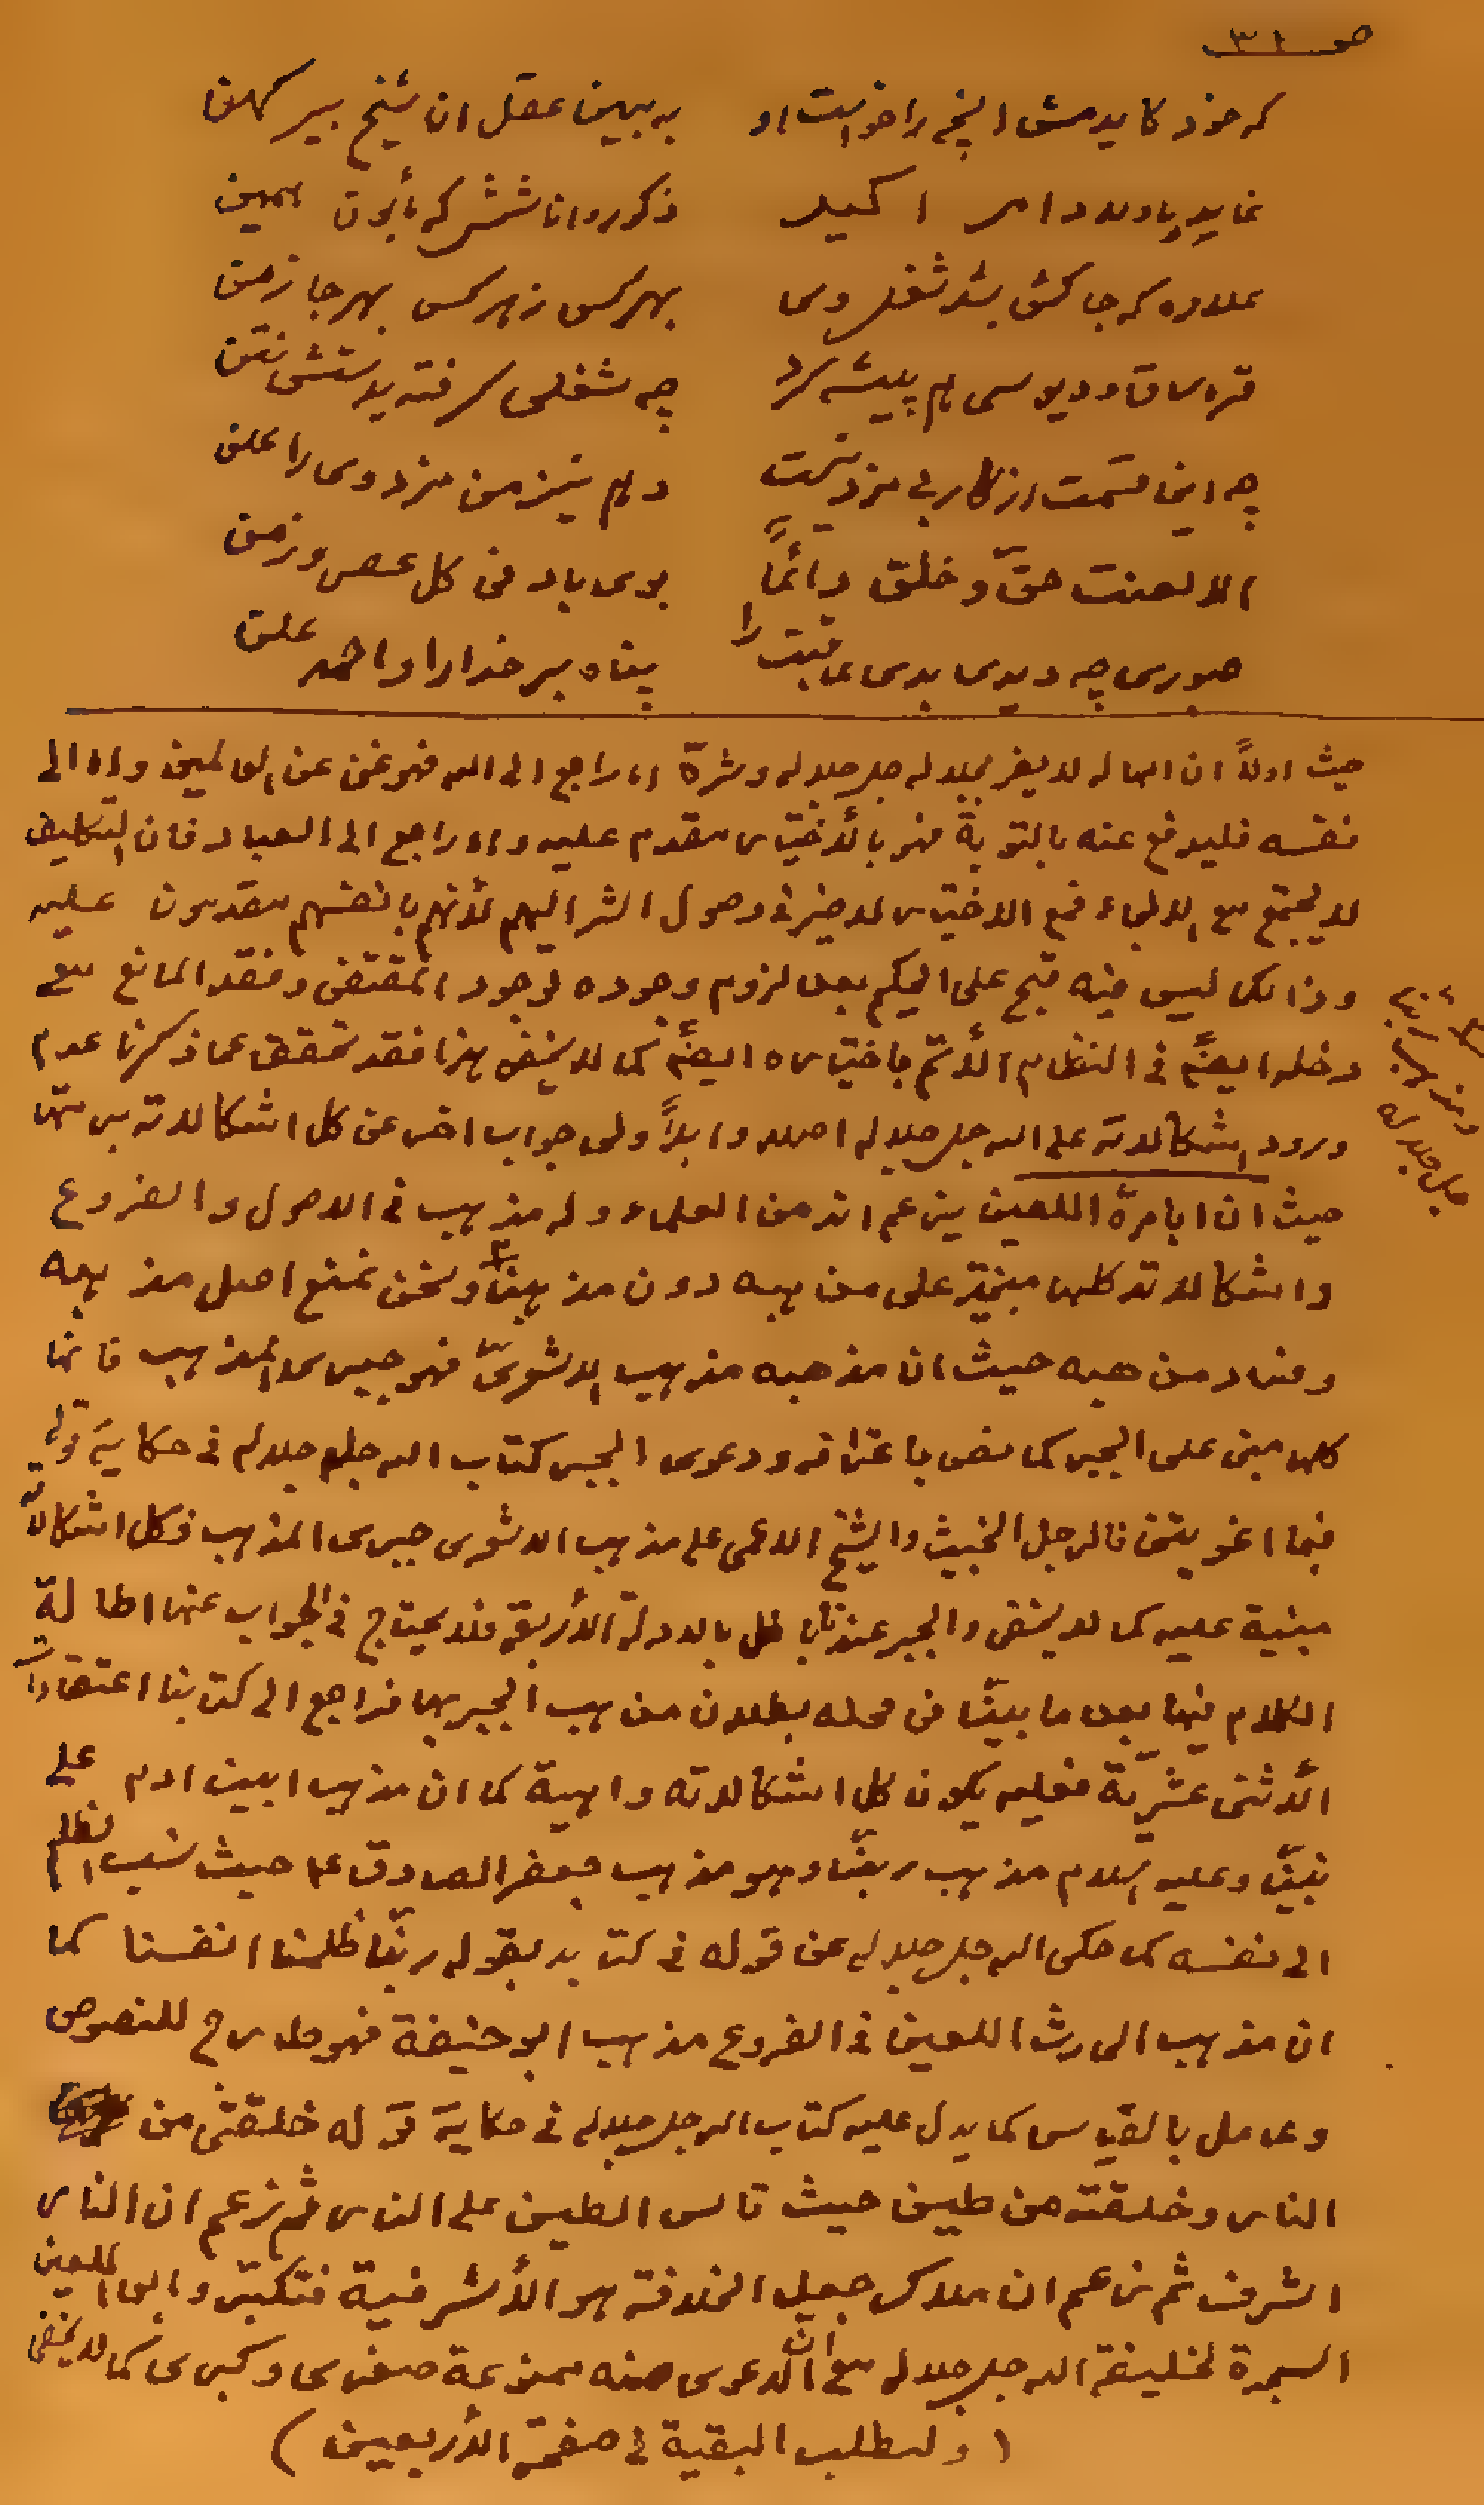 صو ٣١
که خود کایدمش الیخ را خواست او به ببین عقل ان شیخ پیر کهن
نماید باولاد امر اکید ذکور و اناشش که بأتون
علاوه که جاکش بشد شغل وی بهرکس ز هر کس بهر جا ز من
قرمساق و دیوسی هم پیشه کرد چه شغلی گرفته بدستش
چه این قسمت از کار بی مزد نیست دهم نیز من مزد وی را علن
الا لعنت حقّ و خلق دائمًا بوی باد فی کل عصر و زمن
صبوری چه دیدی بدی عاقبت را پناه بر خدا را و احمد علن
حيث اولاً ان اهماله لا يضر بجلاله جل جلاله وشرة اما راجع الى الله فهو غنى عن العالمين واما الى
نفسه فليدفع عنه بالتوبة فهو بالأختيار مقدم عليه واما راجع الى العباد فان التكليف
لا يجتمع مع الالجاء فمع الاختيار لا ضير فى وصول الشر اليهم لأنهم بانفسهم مقدمون عليه
وذالك ليس فيه قبح على الحكيم بعد لزوم وجوده لوجود المقتضى وفقد المانع مع
دخله ايضًا فى النظام الأتم باختياره ايضًا كما لا يخفى بهذا فقد تحقق مما ذكرنا عدم
ورود اشكالاته على الله جل جلاله اصلا وابداً ولى جواب اخر عن كل اشكالاته
حيث ان ابا مرة اللعين يزعم انه من العلماء وله مذهب فى الاصول والفروع
واشكالاته كلها مبنية على مذهبه دون مذهبنا ونحن نمنع اصل مذهبه
وفساد مذهبه حيث ان مذهبه مذهب الاشعرىّ فهو جبرى المذهب فانما
كلها مبنى على الجبر كما نص باعترافه ودعوى الجبر كتاب الله جل جلاله فى حكاية قوله
فبما اغويتنى فالرجل الخبيث والشيخ الاعمى على مذهب الاشعرى جبرى المذهب فكل اشكالاته
مبنية عليه كما لا يخفى والجبر عندنا باطل بالادلة الأربعة فلا يحتاج فى الجواب عنها اطالة
الكلام فيها بعد ما بيّنّا فى محله بطلان مذهب الجبر بها فراجع الى كتابنا اعتقادات
الأثنى عشريّة فعليه يكون كل اشكالاته واهية كما ان مذهب ابينا ادم على
نبيّنا وعليه السلام مذهب ربّنا وهو مذهب جعفر الصادق ع حيث نسب الظلم
الى نفسه كما حكى الله جل جلاله عن قوله فى كتابه بقوله ربّنا ظلمنا انفسنا كما
ان مذهب الحارث اللعين فى الفروع مذهب ابو حنيفة فهو طارح للنصوص
وعامل بالقياس كما يدل عليه كتاب الله جل جلاله فى حكاية قوله خلقتنى من
النار وخلقته من طين حيث قاس الطين على النار ثم زعم ان النار
اشرف ثم زعم ان ملاك جعل الخلافة هو الأشرفية فتكبّر وابى اللعين
السجدة لخليفة الله جل جلاله مع ان الدعوى منه ممنوعة صغرى وكبرى كما لا يخفى
(ولتطلب البقية فى صفحة الأربعين)